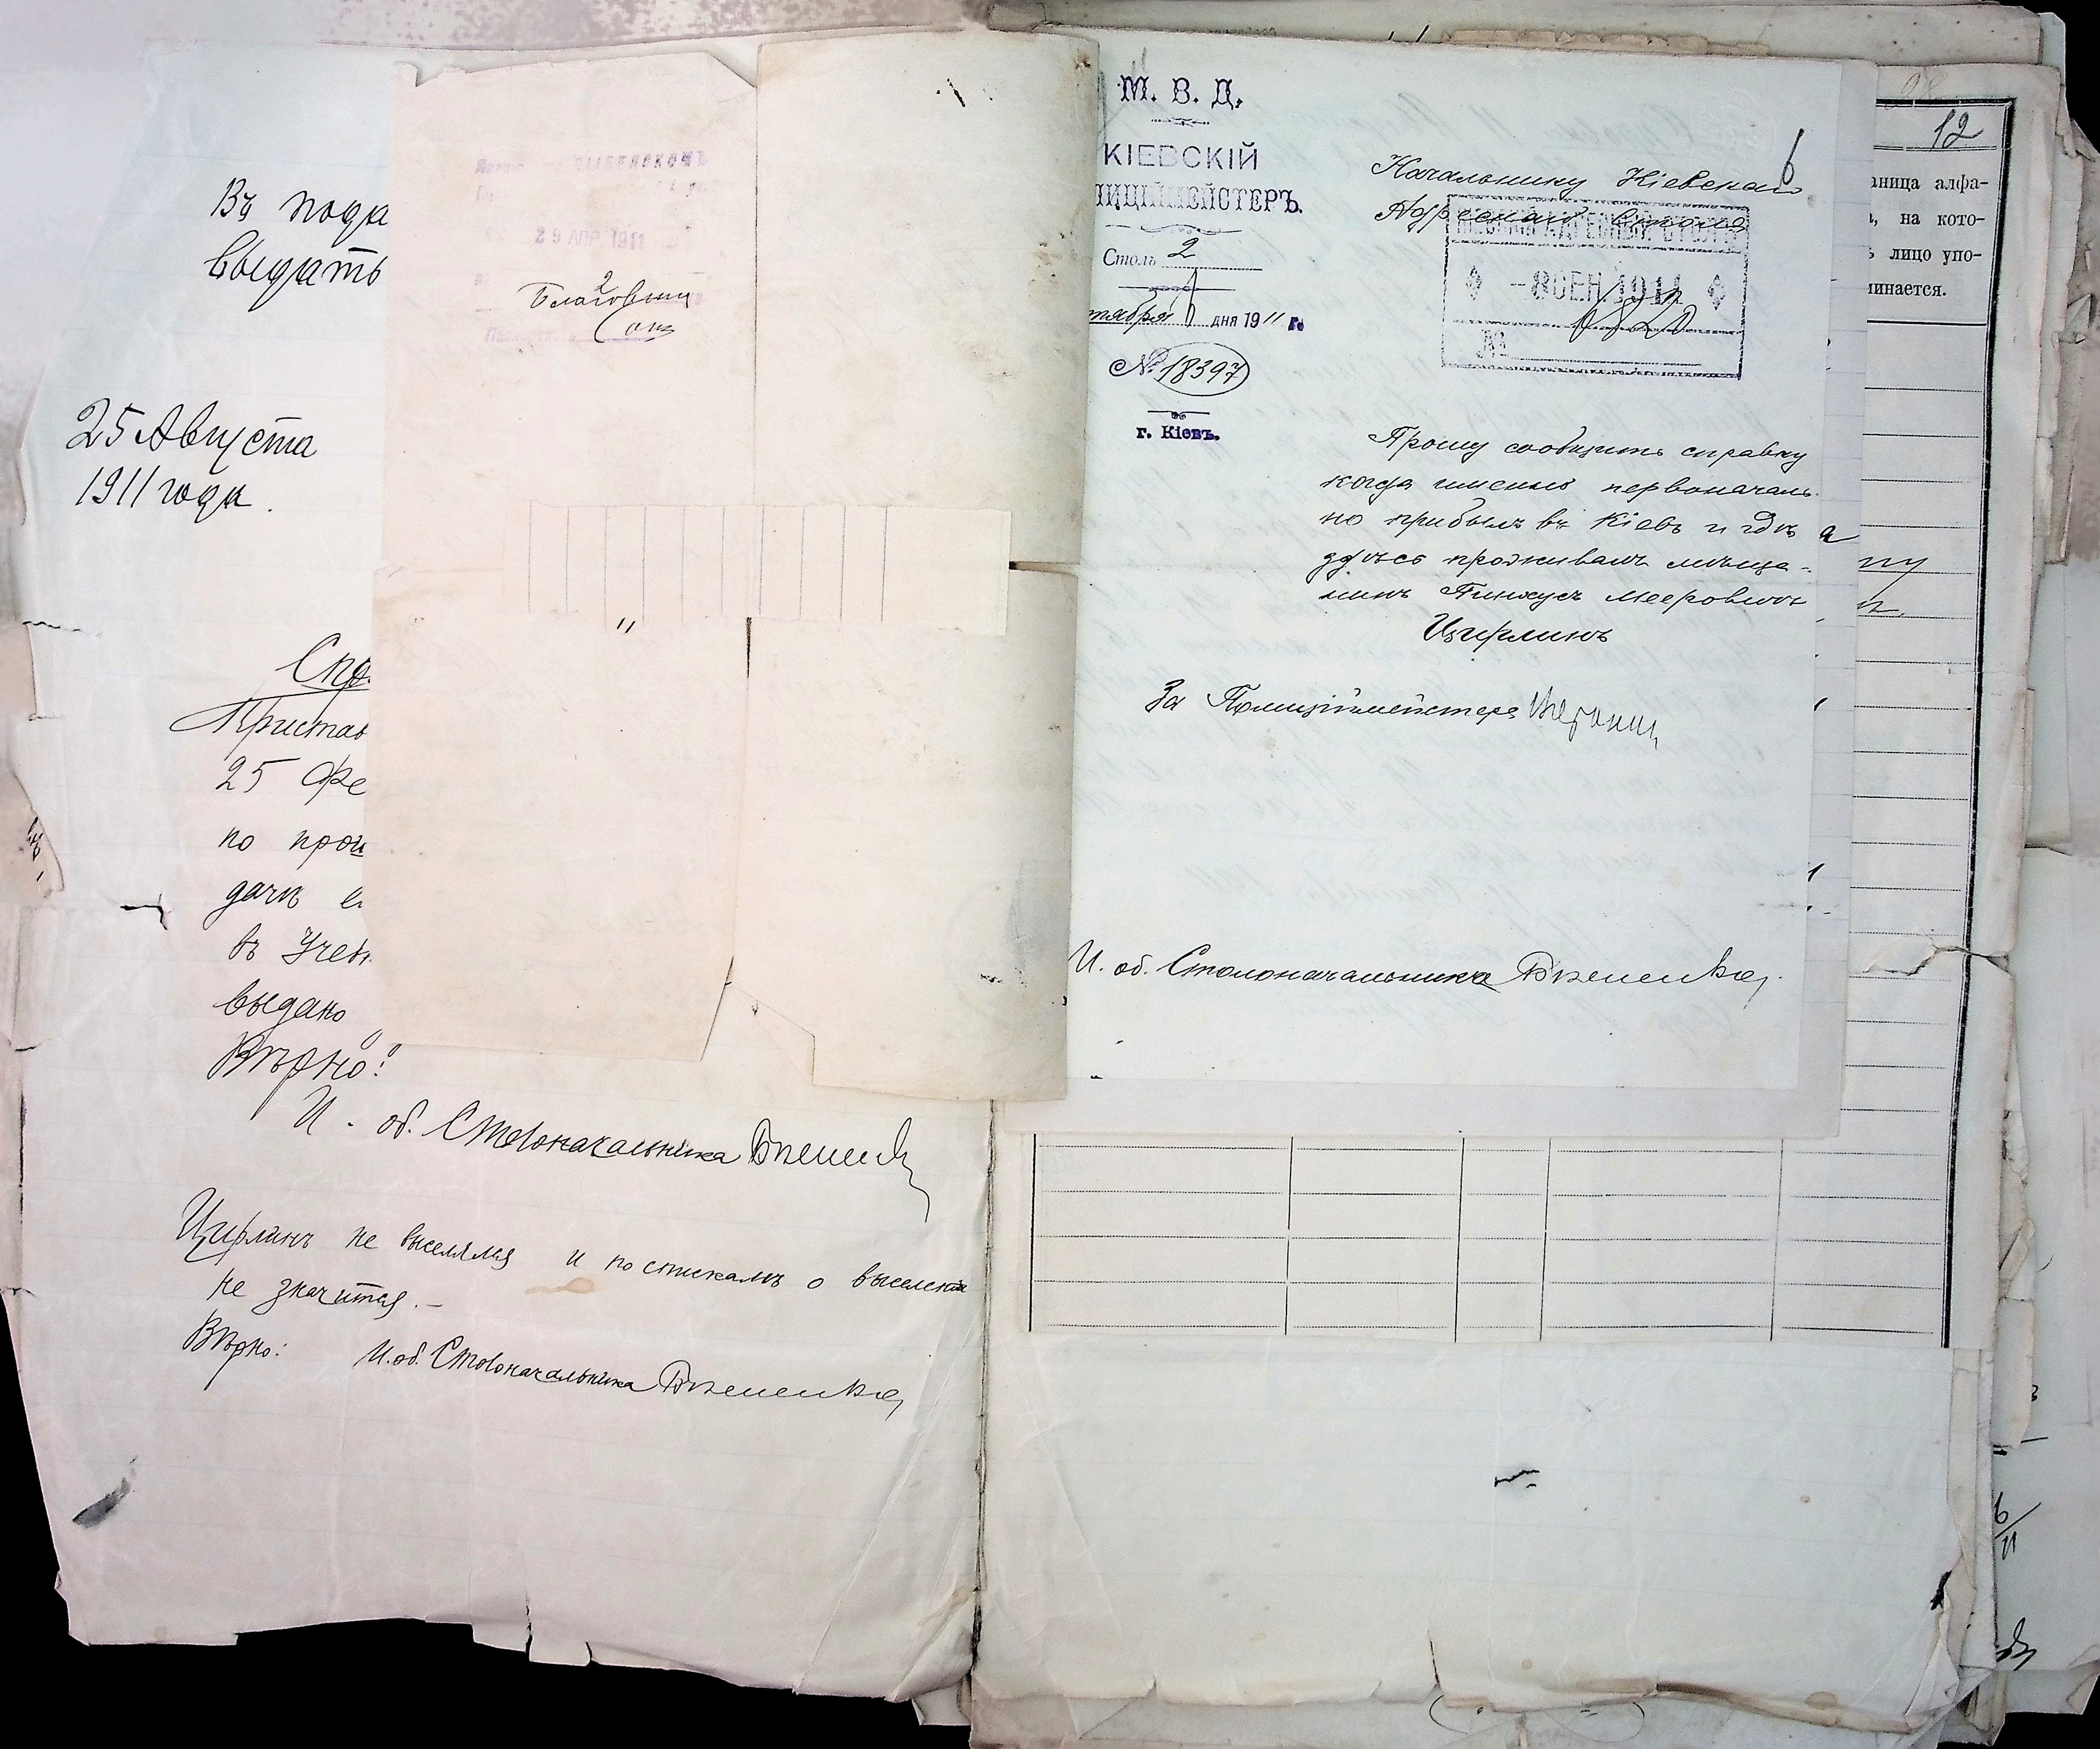 Въ пода
выдать
25 Августа
1911 года.
Спр.
Пристав
25 Фе
по прои
дачѣ
въ Учен
выдано
Вѣрно:
И. об. Столоначальника
Цирлинъ не выселялся и по спискамъ о выселеніи
не значится.—
Вѣрно: И. об. Столоначальника
29 АПР. 1911
2
М. В. Д.
КІЕВСКІЙ
ЛИЦІЙМЕЙСТЕРЪ.
Столъ 2
тября 6 дня 1911 г.
№ 18397
г. Кіевъ.
6
Начальнику Кіевскаго
Адреснаго Стола
КІЕВСКІЙ АДРЕСНЫЙ СТОЛЪ
-8 СЕН 1911
№
Прошу сообщить справку
когда именно первоначаль-
но прибылъ въ Кіевъ и гдѣ
здѣсь проживалъ мѣща-
нинъ Пинхусъ Мееровичъ
Цирлинъ
За Полиціймейстера
И. об. Столоначальника
12
аница алфа-
, на кото-
ъ лицо упо-
инается.